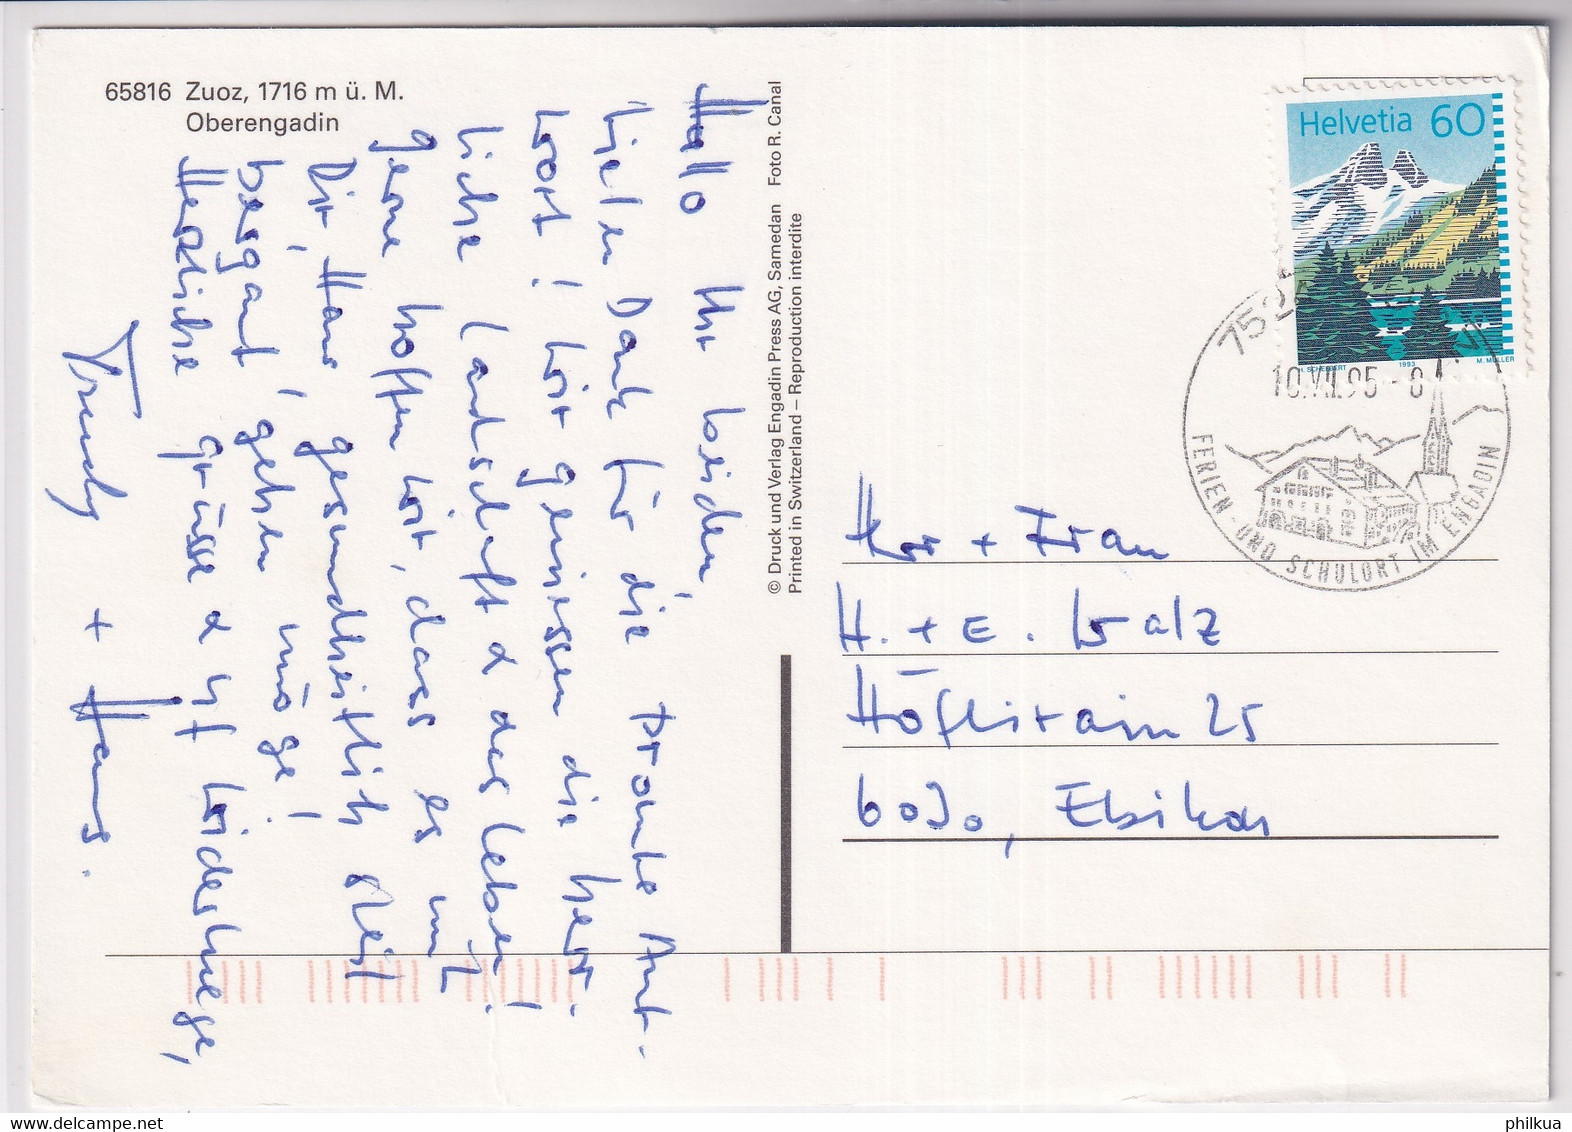 65816 Zuoz, 1716 m ü. M.
Oberengadin
Hallo Ihr beiden,
Vielen Dank für die prompte Ant-
wort! Wir geniessen die herr-
liche Landschaft & das Leben!
Gerne hoffen wir, dass es mit
Dir, Hans, gesundheitlich stets
bergauf gehen möge!
Herzliche grüsse & uf widerluege,
Trudy + Hans.
© Druck und Verlag Engadin Press AG, Samedan Foto R. Canal
Printed in Switzerland – Reproduction interdite
Helvetia 60
H. SCHELBERT 1993 M. MÜLLER
752
10.VII.95-8
FERIEN- UND SCHULORT IM ENGADIN
Hr + Frau
H. + E. Walz
Höflirain 25
6030, Ebikon
philkua